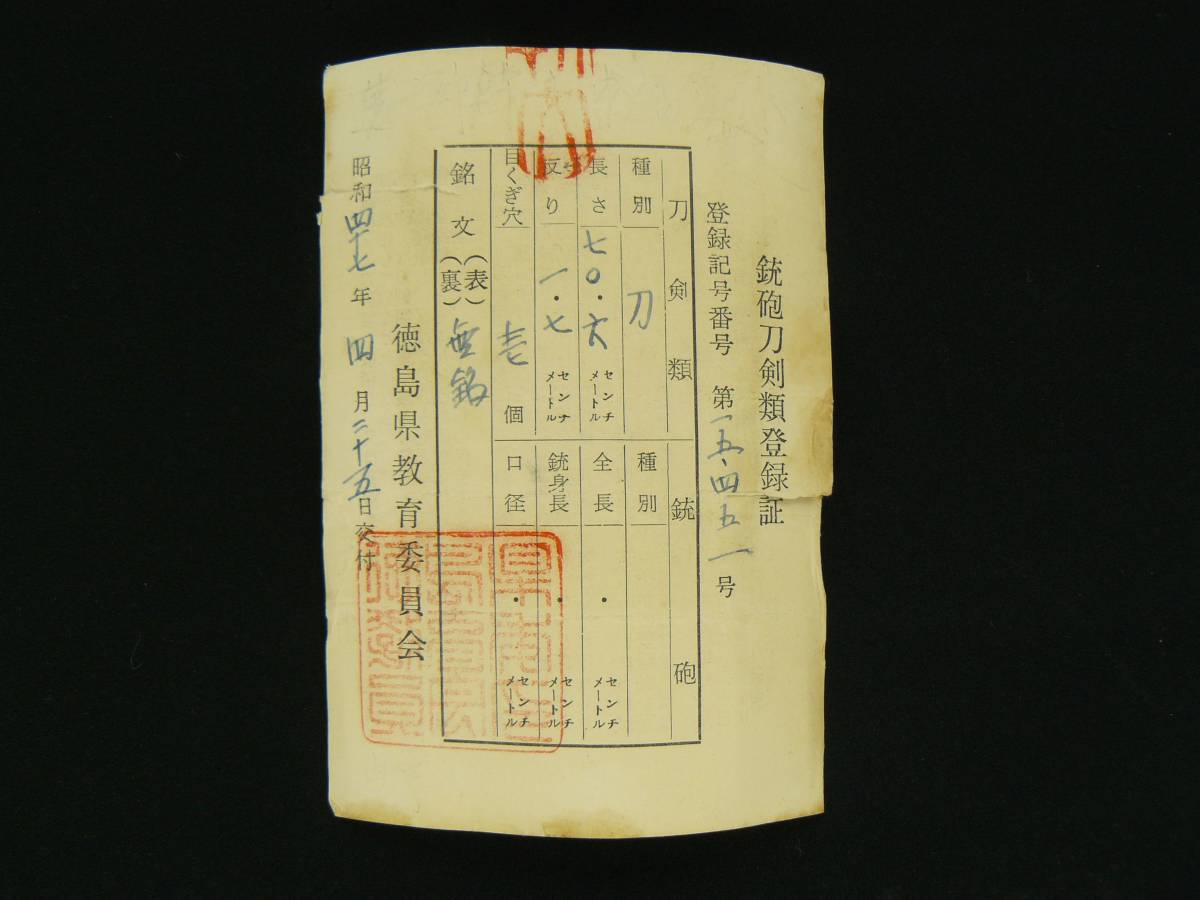 銃砲刀剣類登録証
登録記号番号 第一五四五一号
刀剣類
種別 刀
長さ 七〇・六 センチメートル
反り 一・七 センチメートル
目くぎ穴 壱 個
銘文(表)(裏) 無銘
銃砲
種別
全長 ・ センチメートル
銃身長 ・ センチメートル
口径 ・ センチメートル
徳島県教育委員会
昭和四十七年 四月二十五日交付